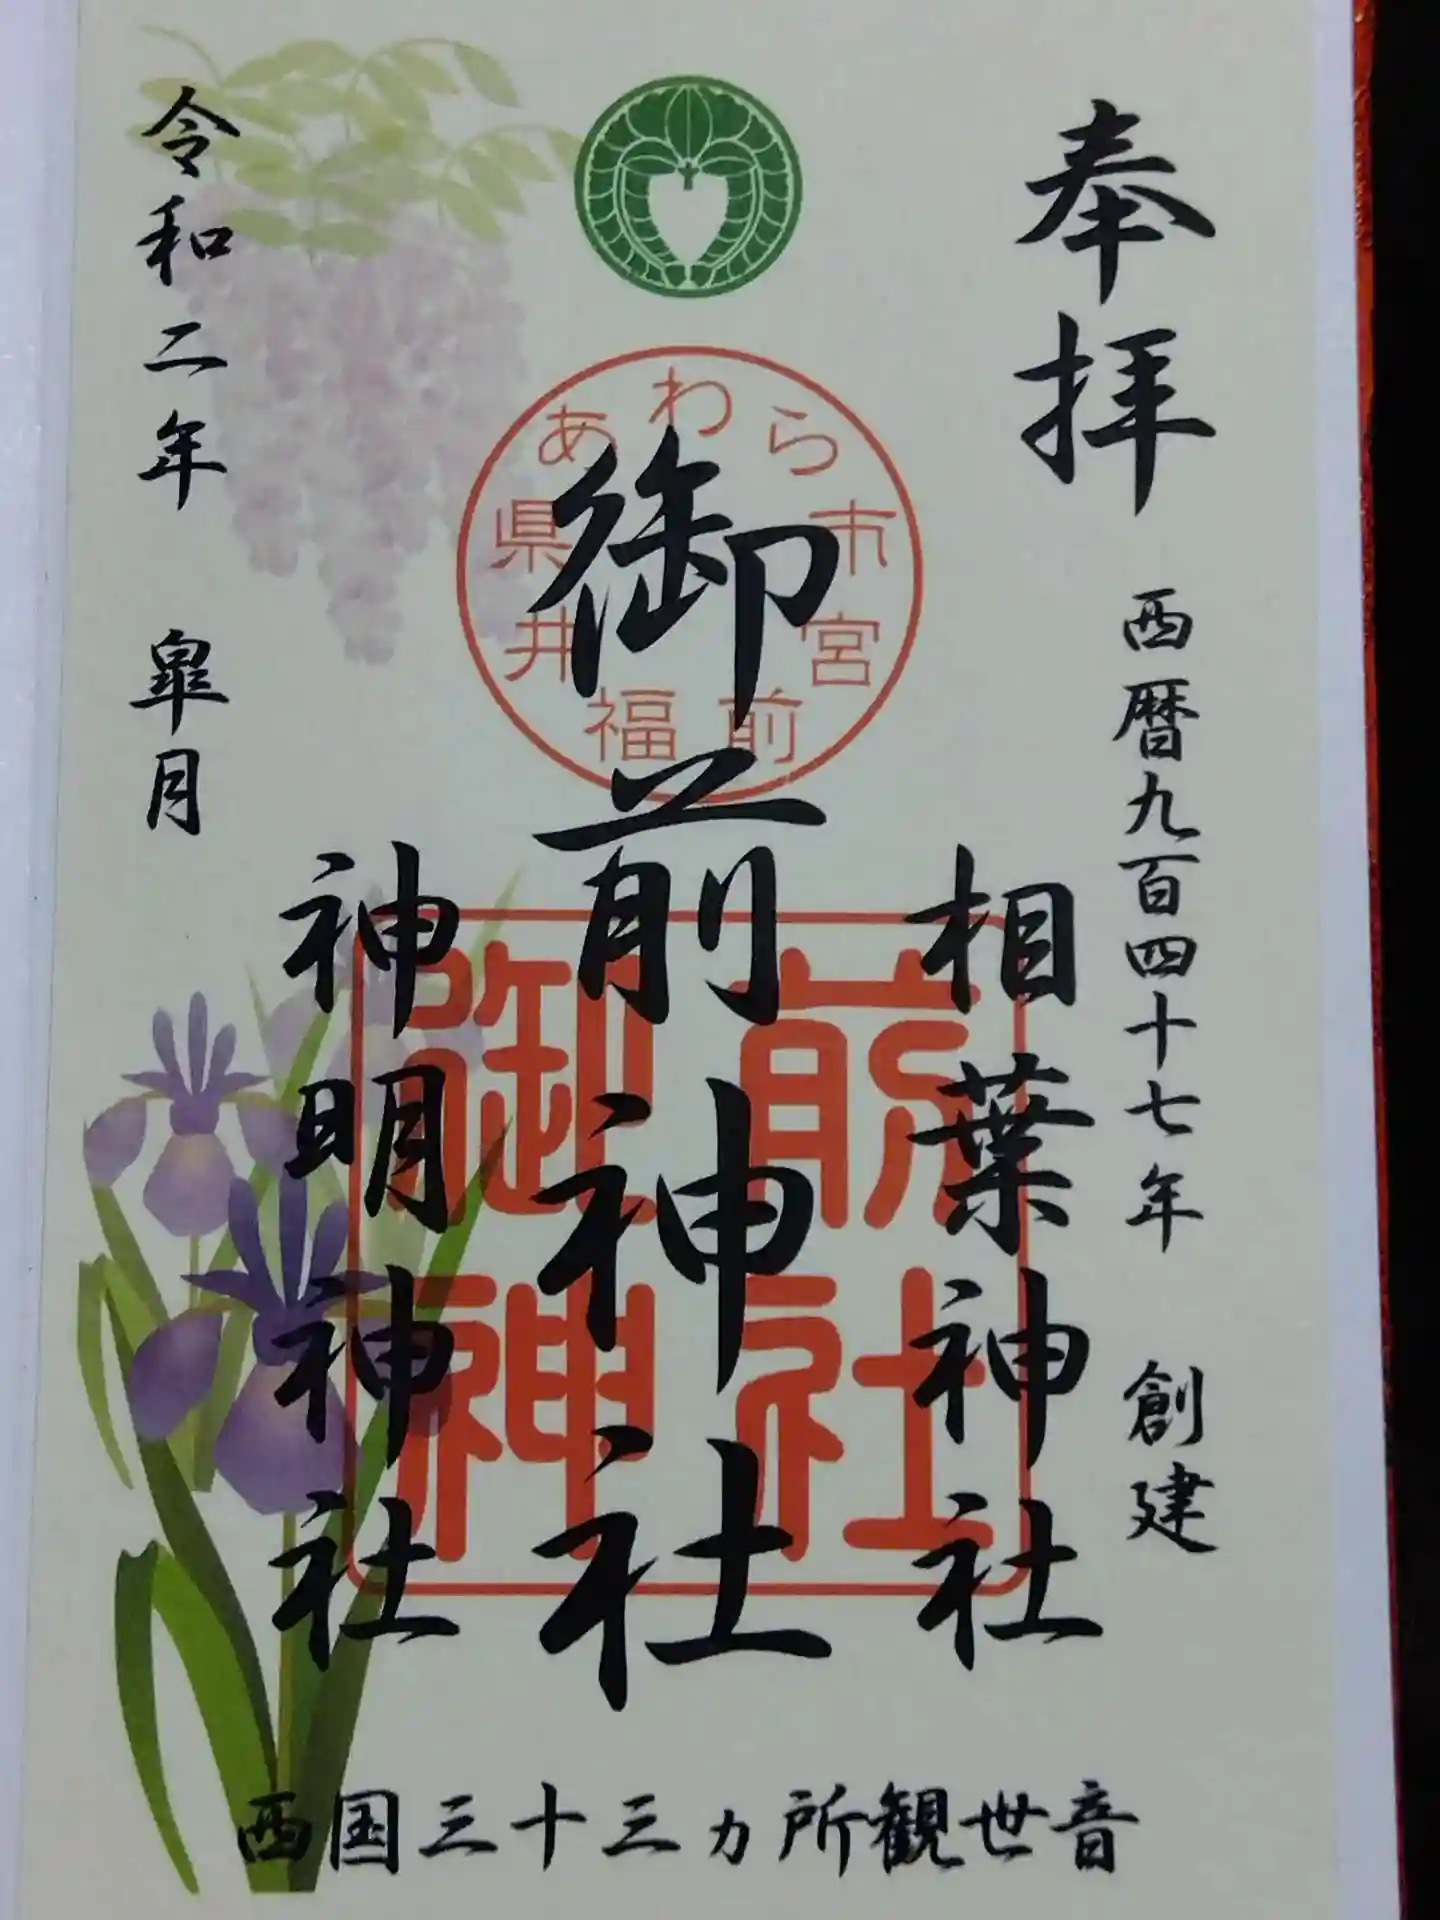 奉拝
西暦九百四十七年 創建
相葉神社
御前神社
神明神社
令和二年 皐月
あわら市宮前
福井県
御前神社
西国三十三ヵ所観世音